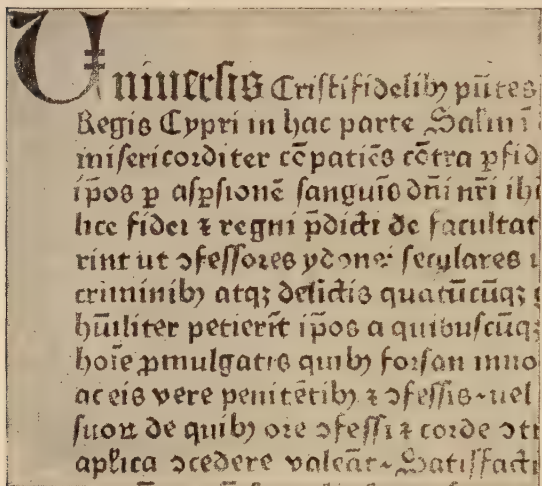 Uniuersis Cristifidelibꝫ pñtes
Regis Cypri in hac parte Salm̄ ī
misericorditer cōpatiēs cōtra ꝑfid
ip̄os ꝑ aspsionē sanguīs dñi nr̄i ihū
lice fidei ⁊ regni p̄dicti de facultat
rint ut ꝯfessores ydonei seculares
criminibꝫ atqꝫ delictis quātūcūqꝫ
hūiliter petierīt ip̄os a quibuscūqꝫ
hoīe ꝓmulgatis quibꝫ forsan inno
ac eis vere penitētibꝫ ⁊ ꝯfessis uel
suoꝝ de quibꝫ ore ꝯfessi ⁊ corde ꝯtr
ap̄lica ꝯcedere valeāt Satisfacti